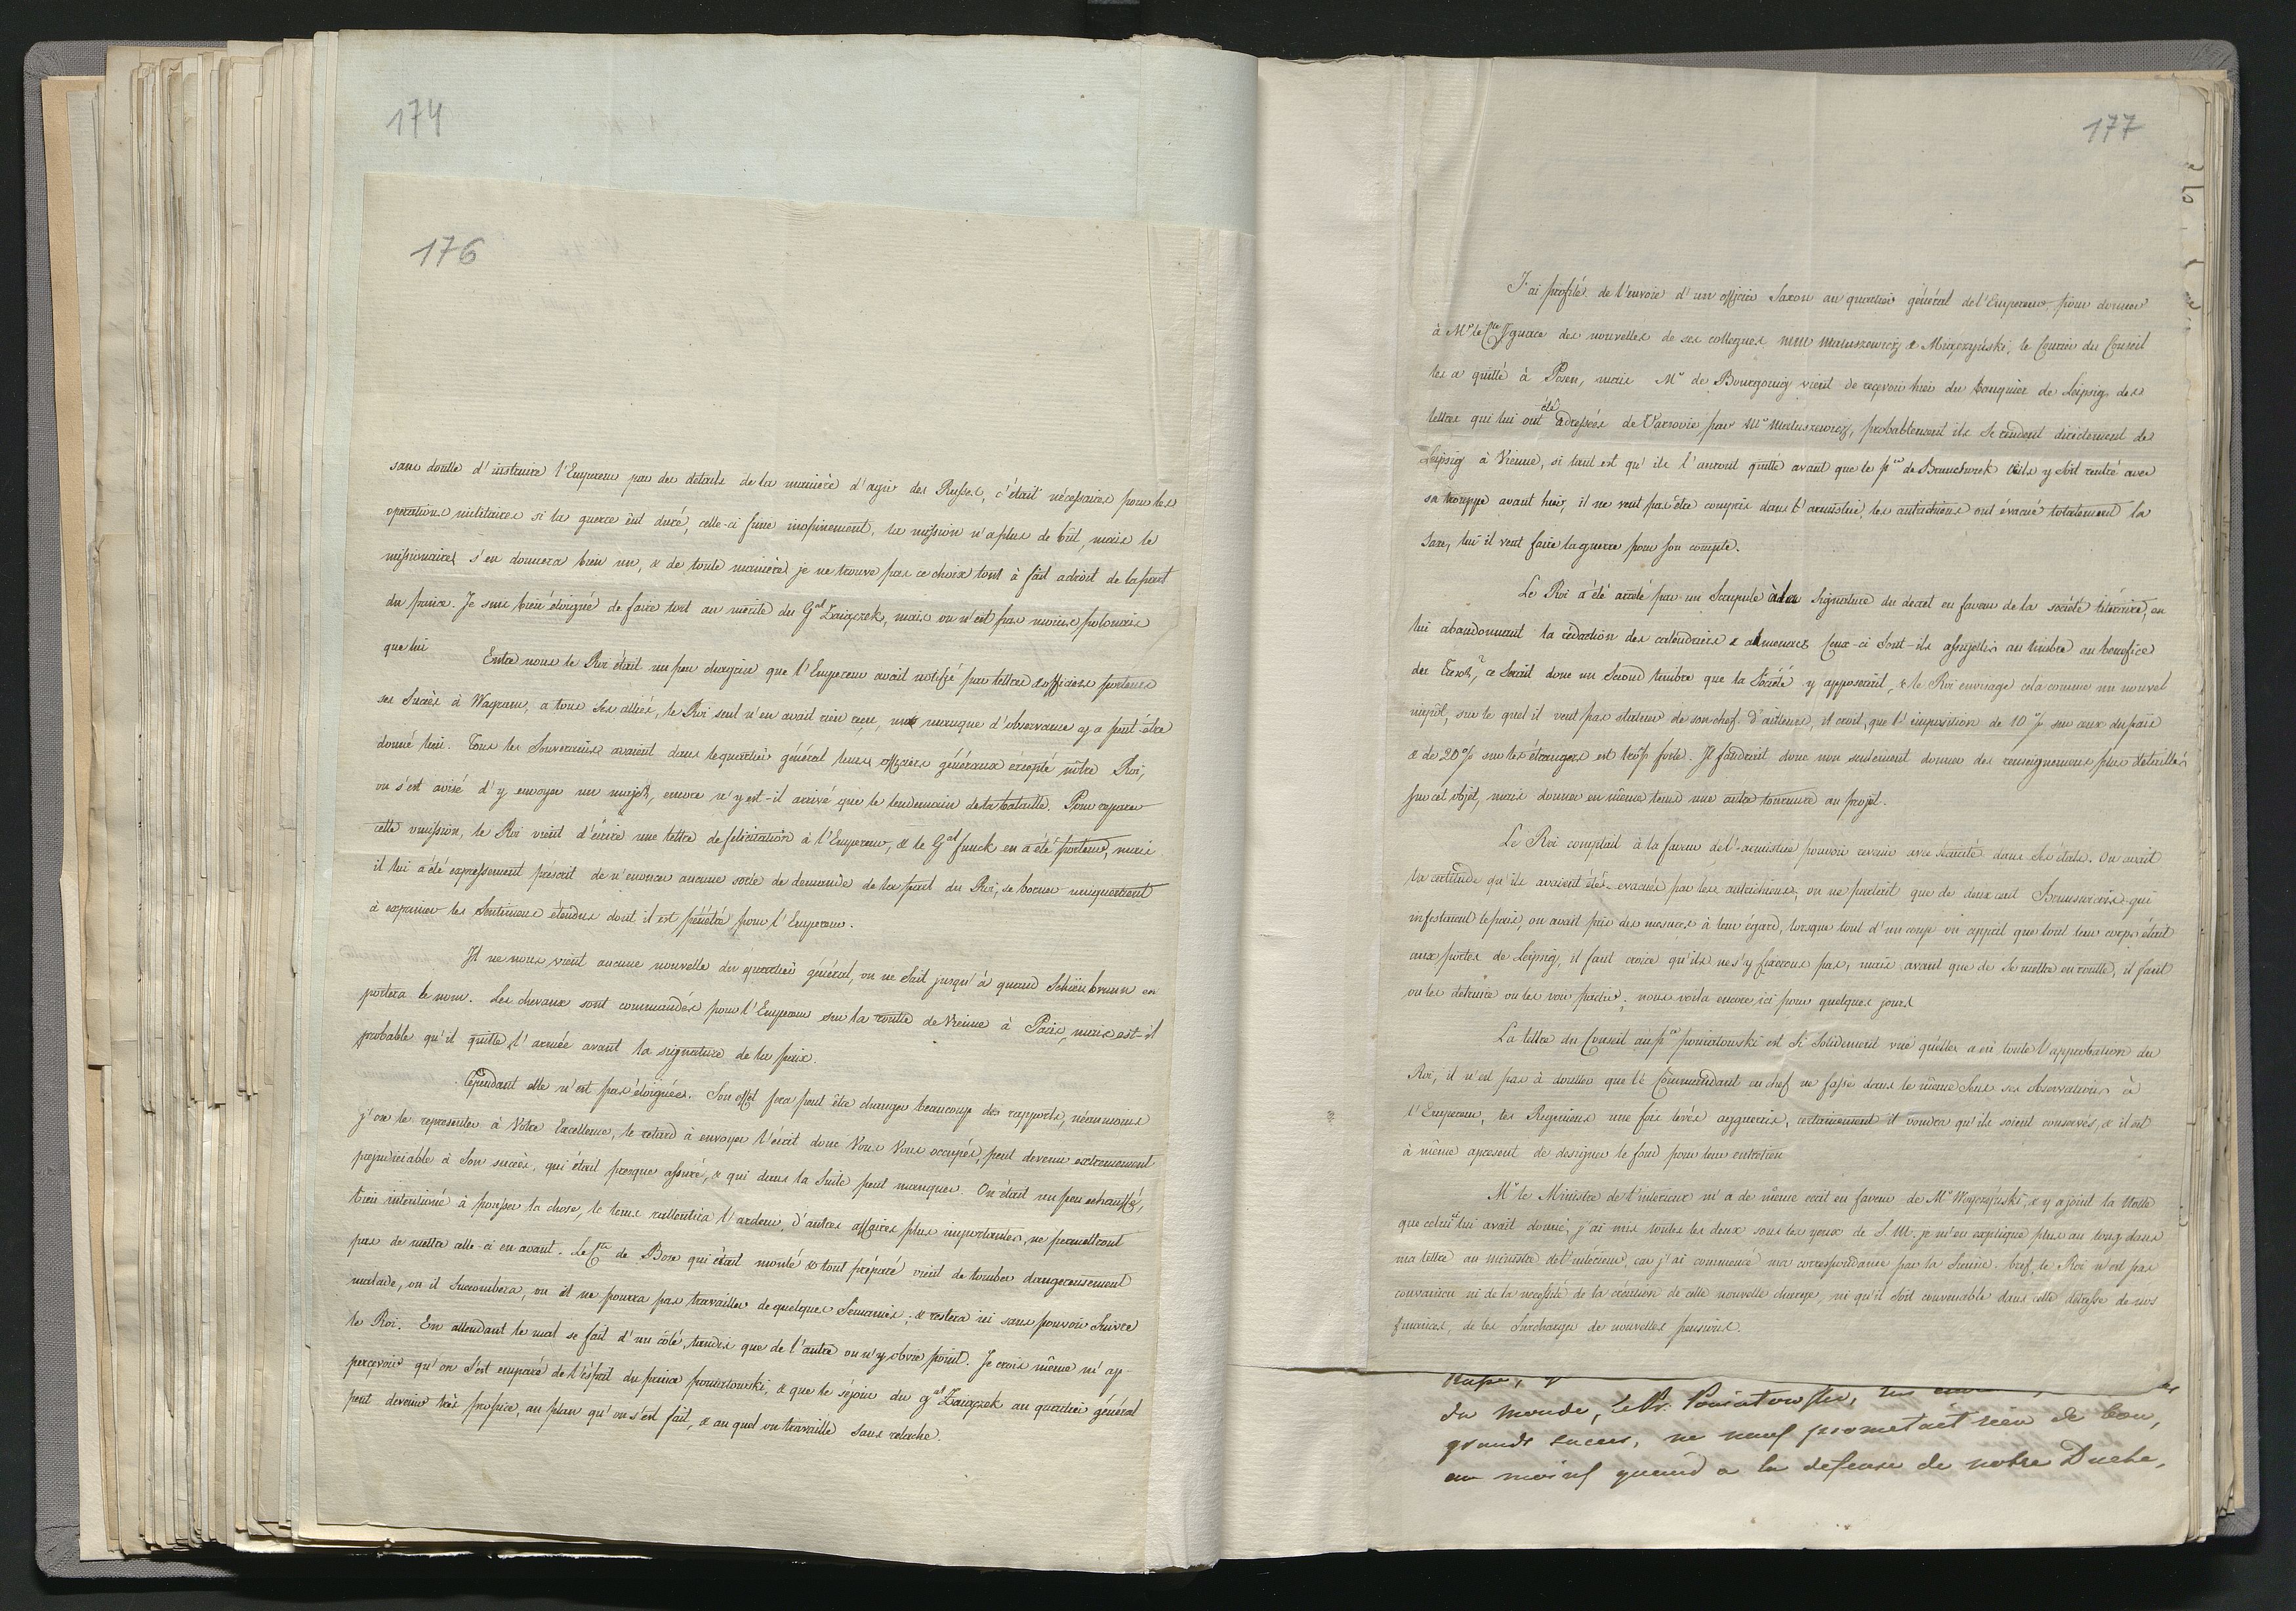 174
176
sans doutte d'instruire l'Empereur par des détails de la manière d'agir des Russes, c'était nécessaire pour les
operations militaires si la guerre eût duré, celle-ci finie inopinement, la mission n'a plus de bût, mais le
missionaire s'en donnera bien un, & de toute manière je ne trouve pas ce choix tout à fait adroit de la part
du prince. Je suis bien éloigné de faire tort au mérite du Gal Zaiączek, mais on n'est pas moins polonais
que lui
Entre nous le Roi était un peu chagrin que l'Empereur avait notifié par lettres & officiers porteurs
ses Succès à Wagram, a tous ses alliés, le Roi seul n'en avait rien reçu, un manque d'observance y a peut-être
donné lieu. Tous les Souverains avaient dans le quartier général leurs officiers généraux excepté nôtre Roi,
on s'est avisé d'y envoyer un major, encore n'y est-il arrivé que le lendemain de la bataille. Pour reparer
cette omission, le Roi vient d'écrire une lettre de felicitation à l'Empereur, & le Gal funck en a été porteur, mais
il lui a été expressement prescrit de n'enoncer aucune sorte de demande de la part du Roi, se borner uniquement
à exprimer les Sentimens étendus dont il est pénétré pour l'Empereur.
Il ne nous vient aucune nouvelle du quartier général, on ne sait jusqu'à quand Schönbrunn en
portera le nom. Les chevaux sont commandés pour l'Empereur sur la route de Vienne à Paris, mais est-il
probable qu'il quitte l'armée avant la signature de la paix.
Cependant elle n'est pas éloignée. Son effet fera peut être changer beaucoup des rapports, néanmoins
j'ose le representer à Votre Excellence, le retard à envoyer l'écrit donc Vous Vous occupés, peut devenir extremement
prejudiciable à Son succès, qui était presque assuré, & qui dans la Suite peut manquer. On était un peu echauffé,
bien intentioné à pousser la chose, le tems rallentira l'ardeur, d'autres affaires plus importantes, ne permettront
pas de mettre celle-ci en avant. Le Cte de Bose qui était monté & tout préparé vient de tomber dangereusement
malade, ou il Succombera, ou il ne pourra pas travailler de quelques Semaines, & restera ici sans pouvoir Suivre
le Roi. En attendant le mal se fait d'un côté, tandis que de l'autre on n'y obvie point. Je crois même m'ap-
percevoir qu'on s'est emparé de l'ésprit du prince poniatowski, & que le séjour du gal Zaiączek au quartier général
peut devenir très propice, au plan qu'on s'est fait, & au quel on travaille sans relache.
177
J'ai profité de l'envoie d'un officier Saxon au quartier général de l'Empereur, pour donner
à Mr le Cte Ignace des nouvelles de ses collegues MM Matuszewicz & Miączyński, le Courier du Conseil
les a quitté à Posen, mais Mr de Bourgoing vient de reçevoir hier du banquier de Leipsig des
lettres qui lui ont été adressées de Varsovie par Mr Matuszewicz, probablement ils se rendent directement de
Leipsig à Vienne, si tant est qu'ils l'auront quitté avant que le pce de Brunswick Oels y soit rentré avec
sa trouppe avant hier, il ne veut pas être compris dans l'armistice, les autrichiens ont évacué totalement la
Saxe, lui il veut faire la guerre pour son compte.
Le Roi a été arrêté par un Scrupule à la signature du decret en faveur de la société literaire, en
lui abandonnant la rédaction des calendriers & almanacs Ceux-ci sont-ils assujettis au timbre au benefice
du Tresor, ce serait donc un Second timbre que la Société y apposerait, & le Roi envisage cela comme un nouvel
impôt, sur le quel il veut pas statuer de son chef. D'ailleurs, il croit, que l'imposition de 10 % sur ceux du païs
& de 20 % sur les étrangers est trop forte. Il faudrait donc non seulement donner des renseignemens plus détaillés
sur cet objet, mais donner en même tems une autre tournure au projet.
Le Roi comptait à la faveur de l'armistice pouvoir revenir avec sécurité dans Ses états. On avait
la certitude qu'ils avaient été evacués par les autrichiens, on ne parlait que de deux cent Brunswicois qui
infestaient le païs, on avait pris des mesures à leur égard, lorsque tout d'un coup on apprit que tout leur corps était
aux portes de Leipsig, il faut croire qu'ils ne s'y fixerons pas, mais avant que de se mettre en route, il faut
ou les detruire ou les voir partir; nous voila encore ici pour quelques jours
La lettre du Conseil au pce poniatowski est Si Solidement vue qu'elle a eu toute l'approbation du
Roi, il n'est pas à doutter que le Commandant en chef ne fasse dans le même Sens ses observations à
l'Empereur, les Regimens une fois levés agguerris, certainement il voudra qu'ils soient conservés, & il est
à même apresent de designer le fond pour leur entretien
Mr le Ministre de l'interieur m'a de même ecrit en faveur de Mr Woyczyński, & y a joint la Notte
que celui-ci lui avait donné; j'ai mis toutes les deux sous les yeux de S.M. je m'en explique plus au long dans
ma lettre au ministre de l'interieur, car j'ai commencé ma correspondance par la Sienne. bref, le Roi n'est pas
convaincu ni de la necessité de la création de cette nouvelle charge, ni qu'il soit convenable dans cette detresse de nos
finances, de les Surcharger de nouvelles pensions.
du monde, le Pr. Poniatowski,
grands succes, ne nous prometait rien de bon,
au moins quand a la defense de notre Duche,